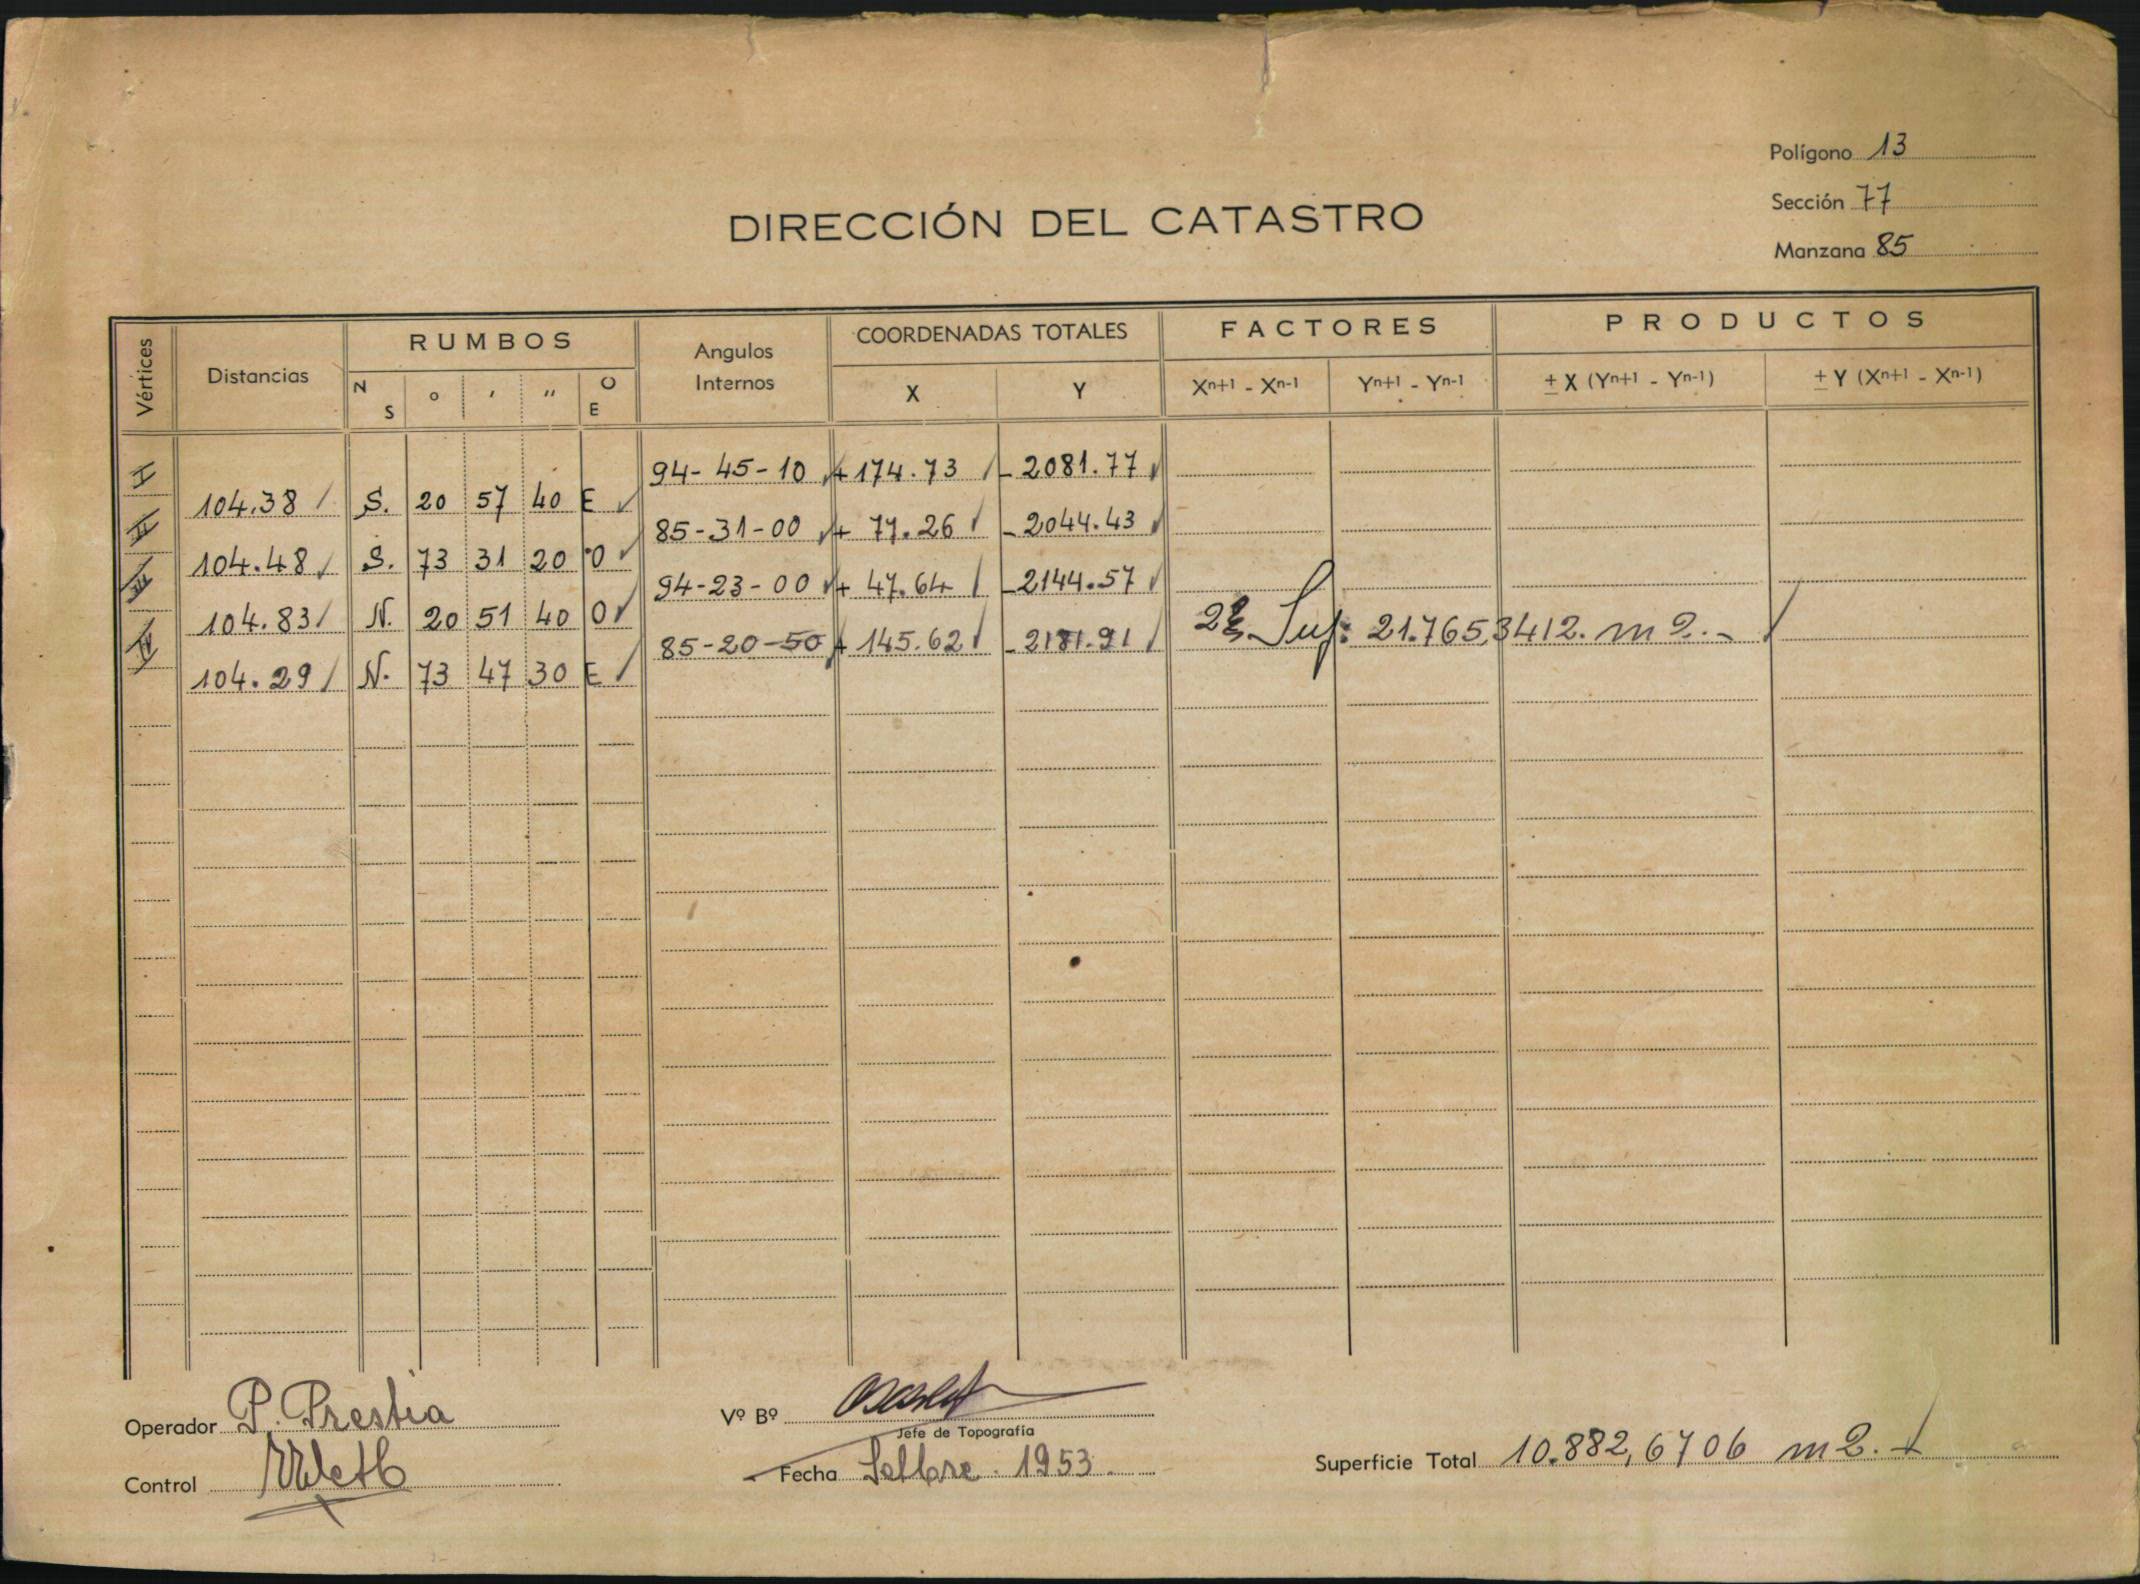 Polígono 13
Sección 77
Manzana 85
DIRECCIÓN DEL CATASTRO
Vértices Distancias RUMBOS Angulos Internos COORDENADAS TOTALES FACTORES PRODUCTOS
N S o ' '' O E X Y Xn+1 - Xn-1 Yn+1 - Yn-1 ± X (Yn+1 - Yn-1) ± Y (Xn+1 - Xn-1)
I 94-45-10 + 174.73 - 2081.77
104.38 S. 20 57 40 E
II 85-31-00 + 77.26 - 2044.43
104.48 S. 73 31 20 O
III 94-23-00 + 47.64 - 2144.57
104.83 N. 20 51 40 O
IV 85-20-50 + 145.62 - 2181.91 Sup: 21.765,3412. m2.-
104.29 N. 73 47 30 E
Operador P. Prestia
Vº Bº
Jefe de Topografía
Control
Fecha Setbre. 1953.
Superficie Total 10.882,6706 m2.-